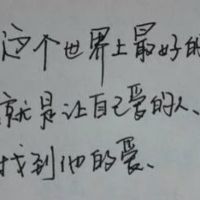 这个世界上最好的
就是让自己爱的人、
找到他的爱、